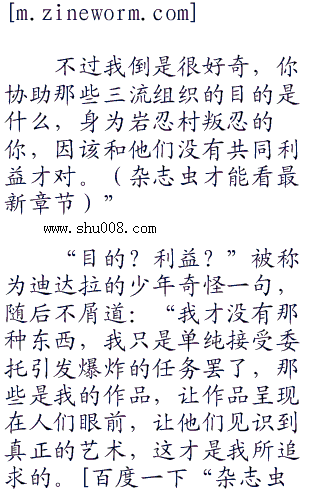 [m.zineworm.com]
不过我倒是很好奇，你
协助那些三流组织的目的是
什么，身为岩忍村叛忍的
你，因该和他们没有共同利
益才对。（杂志虫才能看最
新章节）”
www.shu008.com
“目的？利益？”被称
为迪达拉的少年奇怪一句，
随后不屑道：“我才没有那
种东西，我只是单纯接受委
托引发爆炸的任务罢了，那
些是我的作品，让作品呈现
在人们眼前，让他们见识到
真正的艺术，这才是我所追
求的。[百度一下“杂志虫